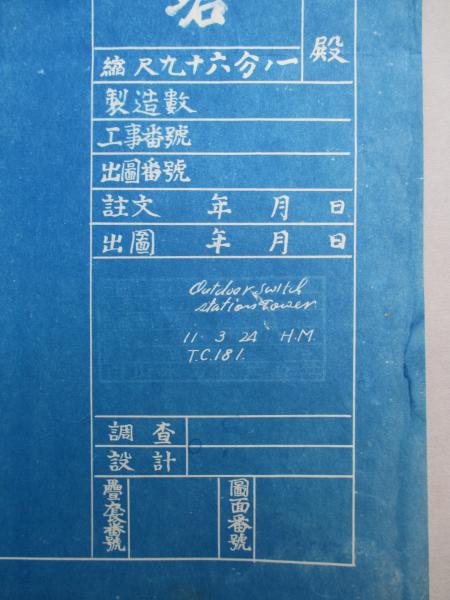 殿
縮尺九十六分ノ一
製造數
工事番號
出圖番號
註文 年 月 日
出圖 年 月 日
Outdoor switch
station Tower
11 3 24 H.M.
T.C.181.
調査
設計
疊套番號
圖面番號